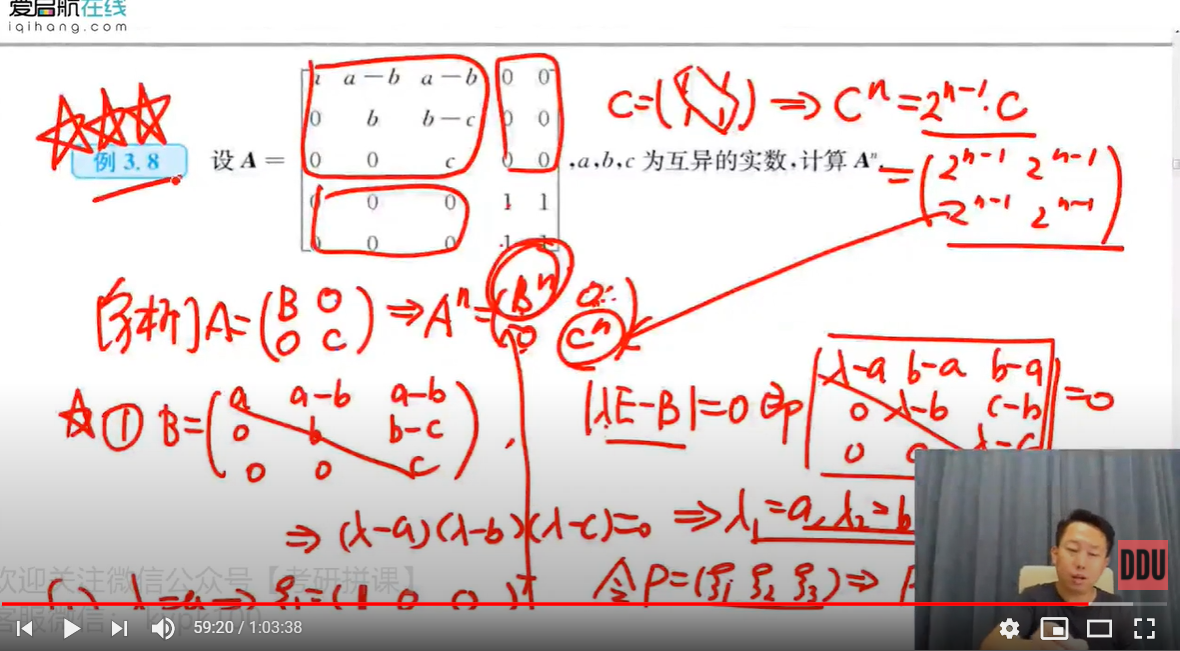 爱启航在线
iqihang.com
例 3.8 设 A =
a-b a-b 0 0
0 b b-c 0 0
0 0 c 0 0
0 0 1 1
0 0 1 1
,a,b,c 为互异的实数,计算 Aⁿ.
C=(1 1 1 1) ⇒ Cⁿ=2ⁿ⁻¹·C
=(2ⁿ⁻¹ 2ⁿ⁻¹
2ⁿ⁻¹ 2ⁿ⁻¹)
[分析] A=(B O
O C) ⇒ Aⁿ=(Bⁿ O
O Cⁿ)
① B=(a a-b a-b
0 b b-c
0 0 c),
|λE-B|=0 即 |λ-a b-a b-a
0 λ-b c-b
0 0 λ-c|=0
⇒ (λ-a)(λ-b)(λ-c)=0 ⇒ λ₁=a, λ₂=b
欢迎关注微信公众号【考研拼课】
λ=a ⇒ ξ₁=(1 0 0)ᵀ
令 P=(ξ₁ ξ₂ ξ₃) ⇒ P
客服微信:
DDU
59:20 / 1:03:38